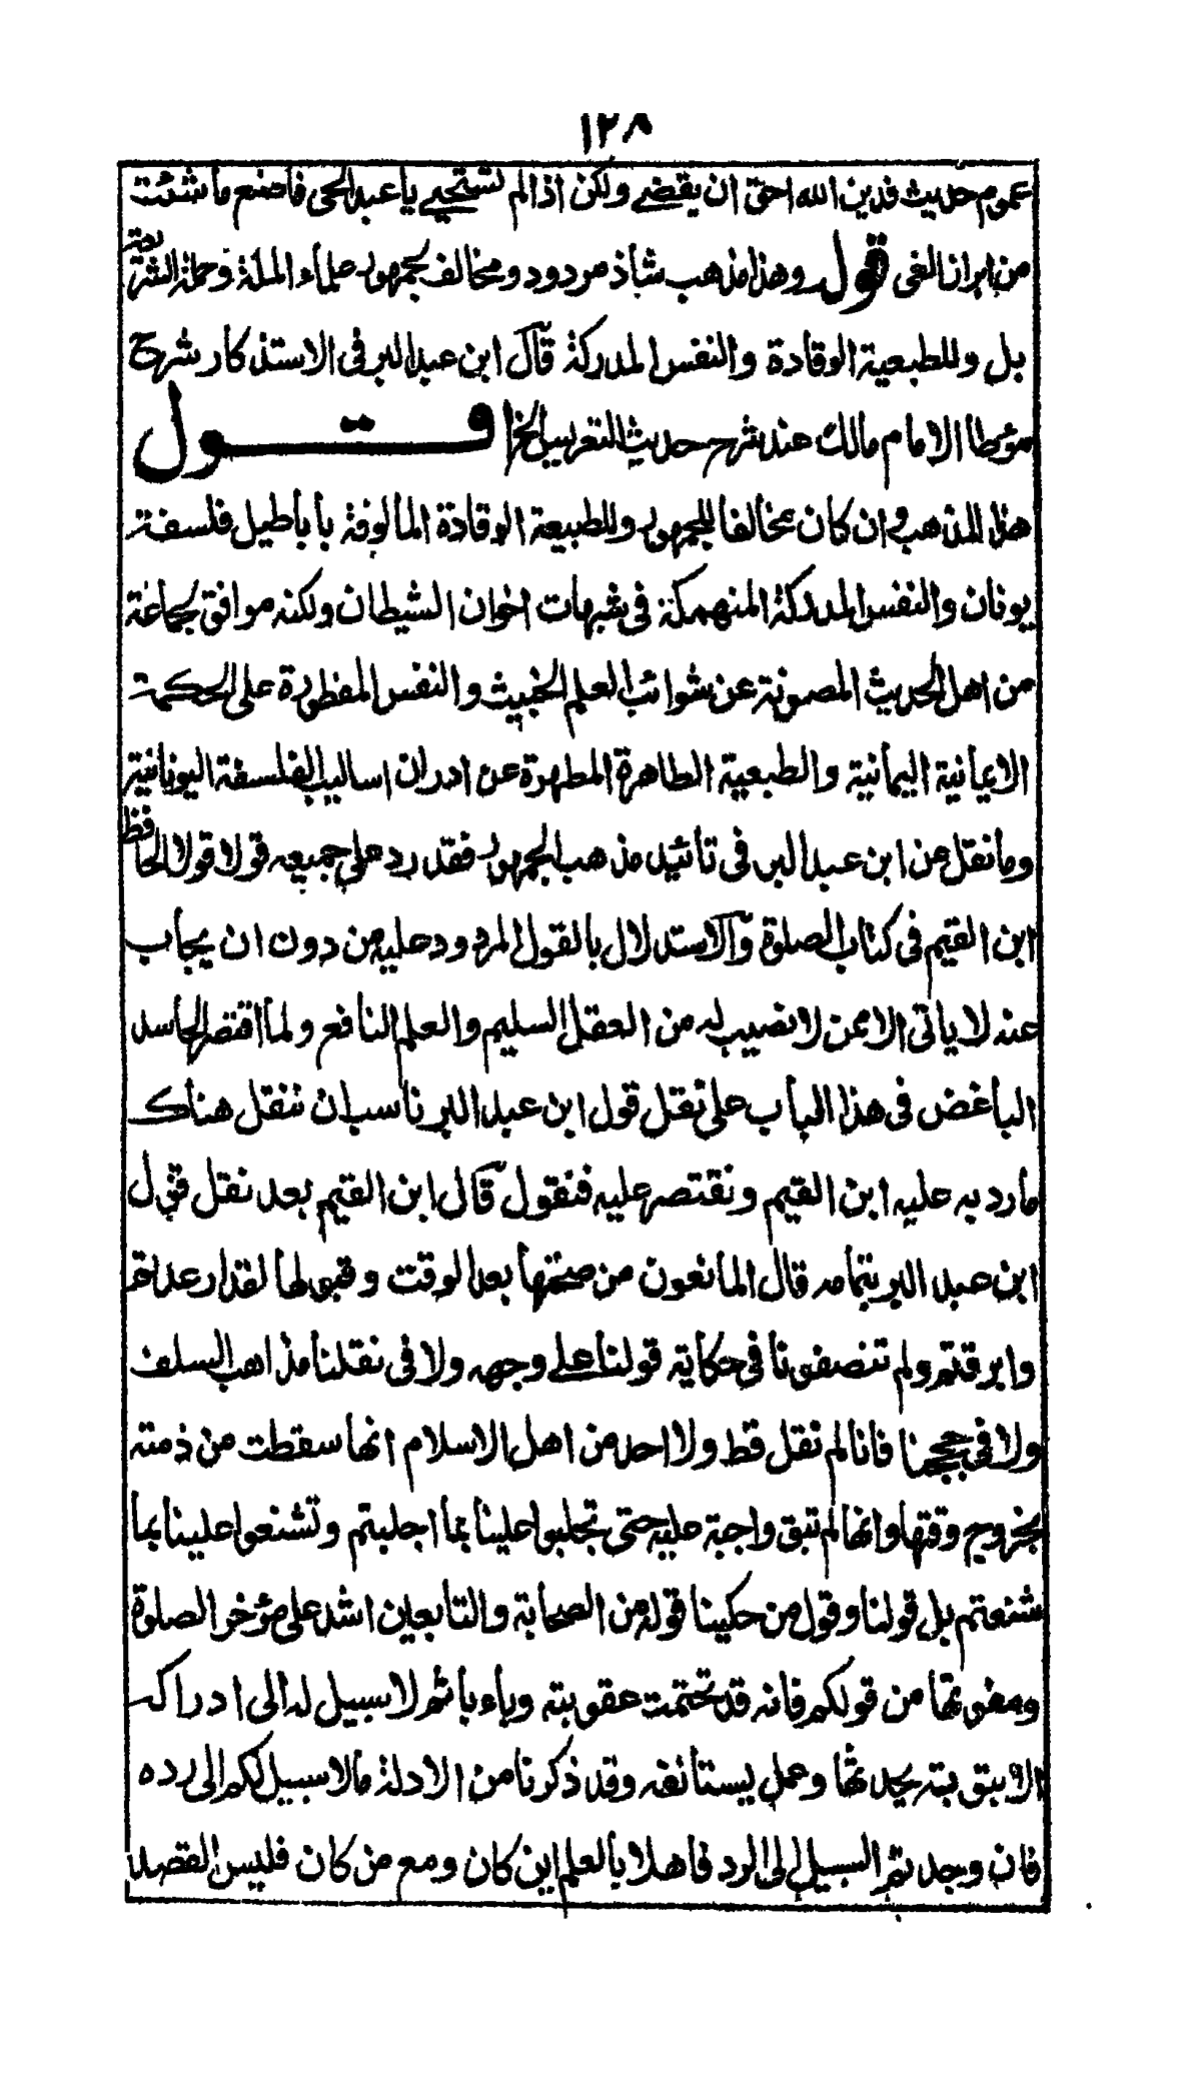 ١٢٨
عموم حديث فدين الله احق ان يقضے ولكن اذا لم تستحيے يا عبد الحى فاصنع ما شئت
من ابراز الغى قوله وهذا مذهب شاذ مردود ومخالف لجمهور علماء الملة وحملة الشريعة
بل وللطبعية الوقادة والنفس المدركة قال ابن عبد البر فى الاستذكار شرح
مؤطا الامام مالك عند شرح حديث التعريس الخ اقــــول
هذا المذهب وان كان مخالفا للجمهور وللطبيعة الوقادة المألوفة بأباطيل فلسفة
يونان والنفس المدركة المنهمكة فى شبهات اخوان الشيطان ولكنه موافق لجماعة
من اهل الحديث المصونة عن شوائب العلم الخبيث والنفس المفطورة على الحكمة
الايمانية اليمانية والطبعية الطاهرة المطهرة عن ادران اساليب الفلسفة اليونانية
وما نقل عن ابن عبد البر فى تائيد مذهب الجمهور فقد رد على جميعه قولا قولا الحافظ
ابن القيم فى كتاب الصلوة والاستدلال بالقول المردود عليه من دون ان يجاب
عنه لا ياتى الا ممن لا نصيب له من العقل السليم والعلم النافع ولما اقتصر الحاسد
الباغض فى هذا الباب على نقل قول ابن عبد البر ناسب ان ننقل هناك
ما رد به عليه ابن القيم ونقتصر عليه فنقول قال ابن القيم بعد نقل قول
ابن عبد البر بتمامه قال المانعون من صحتها بعد الوقت وقبولها لقد ارعدتم
وابرقتم ولم تنصفونا فى حكاية قولنا علے وجهه ولا فى نقلنا مذاهب السلف
ولا فى حججنا فانا لم نقل قط ولا احد من اهل الاسلام انها سقطت من ذمته
بخروج وقتها وانها لم تبق واجبة عليه حتى تجلبوا علينا بما اجلبتم وتشنعوا علينا بما
شنعتم بل قولنا وقول من حكينا قوله من الصحابة والتابعين اشد على مؤخر الصلوة
ومفوتها من قولكم فانه قد تحتمت عقوبته وباء باثم لا سبيل له الى ادراكه
الا بتوبته يحدثها وعمل يستانفه وقد ذكرنا من الادلة ما لا سبيل لكم الى رده
فان وجدتم السبيل الى الرد فاهلا بالعلم اين كان ومع من كان فليس القصد